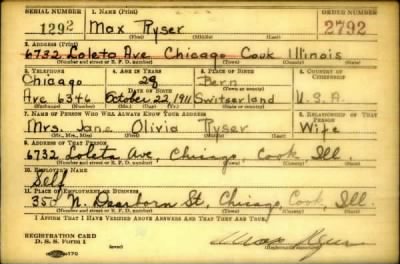 SERIAL NUMBER 1. NAME (Print) ORDER NUMBER
1292 Max Ryser 2792
(First) (Middle) (Last)
2. ADDRESS (Print)
6732 Loleta Ave Chicago Cook Illinois
(Number and street or R. F. D. number) (Town) (County) (State)
3. TELEPHONE 4. AGE IN YEARS 5. PLACE OF BIRTH 6. COUNTRY OF CITIZENSHIP
Chicago 29 Bern
DATE OF BIRTH (Town or county)
Ave 6346 October 22, 1911 Switserland U.S.A.
7. NAME OF PERSON WHO WILL ALWAYS KNOW YOUR ADDRESS 8. RELATIONSHIP OF THAT PERSON
Mrs. Jane Olivia Ryser Wife
(Mr., Mrs., Miss) (First) (Middle) (Last)
9. ADDRESS OF THAT PERSON
6732 Loleta Ave, Chicago, Cook, Ill
(Number and street or R. F. D. number) (Town) (County) (State)
10. EMPLOYER'S NAME
Self
11. PLACE OF EMPLOYMENT OR BUSINESS
350 N. Dearborn St, Chicago, Cook, Ill.
(Number and street or R. F. D. number) (Town) (County) (State)
I AFFIRM THAT I HAVE VERIFIED ABOVE ANSWERS AND THAT THEY ARE TRUE.
REGISTRATION CARD
D. S. S. Form 1 Max Ryser
(Registrant's signature)